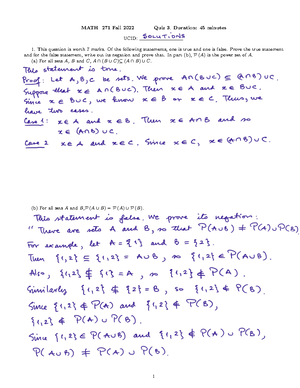 MATH 271 Fall 2022 Quiz 3. Duration: 45 minutes
UCID: SOLUTIONS
1. This question is worth 7 marks. Of the following statements, one is true and one is false. Prove the true statement
and for the false statement, write out its negation and prove that. In part (b), P(A) is the power set of A.
(a) For all sets A, B and C, A∩(B∪C)⊆(A∩B)∪C.
This statement is true.
Proof: Let A,B,C be sets. We prove A∩(B∪C) ⊆ (A∩B)∪C.
Suppose that x∈A∩(B∪C). Then x∈A and x∈B∪C.
Since x∈B∪C, we know x∈B or x∈C. Thus, we
have two cases.
Case 1: x∈A and x∈B. Then x∈A∩B and so
x∈(A∩B)∪C.
Case 2 x∈A and x∈C. Since x∈C, x∈(A∩B)∪C.
(b) For all sets A and B, P(A∪B) = P(A)∪P(B).
This statement is false. We prove its negation:
"There are sets A and B, so that P(A∪B) ≠ P(A)∪P(B)
For example, let A={1} and B={2}.
Then {1,2} ⊆ {1,2} = A∪B, so {1,2}∈P(A∪B).
Also, {1,2} ⊈ {1}=A, so {1,2}∉P(A).
Similarly {1,2} ⊈ {2}=B, so {1,2}∉P(B).
Since {1,2}∉P(A) and {1,2}∉P(B),
{1,2}∉P(A)∪P(B).
Since {1,2}∈P(A∪B) and {1,2}∉P(A)∪P(B),
P(A∪B) ≠ P(A)∪P(B).
1